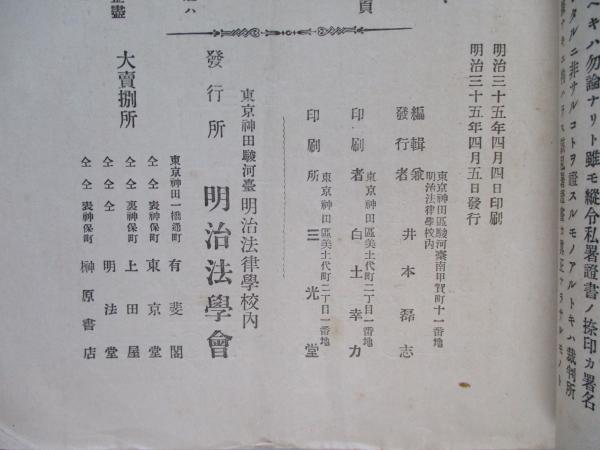 ヘキハ勿論ナリト雖モ縱令私署證書ノ捺印カ署名
タルニ非ナルコトヲ證スルモノアルトキハ裁判所
明治三十五年四月四日印刷
明治三十五年四月五日發行
東京神田區駿河臺南甲賀町十一番地
明治法律學校內
編輯兼
發行者 井本磊志
東京神田區美土代町二丁目一番地
印刷者 白土幸力
東京神田區美土代町二丁目一番地
印刷所 三光堂
東京神田駿河臺明治法律學校內
發行所 明治法學會
大賣捌所
東京神田一橋通町 有斐閣
仝仝表神保町 東京堂
仝仝裏神保町 上田屋
仝仝仝 明法堂
仝仝表神保町 榊原書店
頁